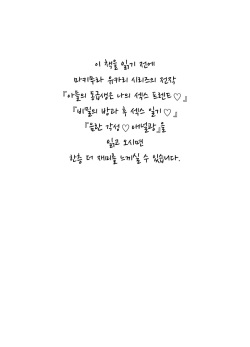 이 책을 읽기 전에
마키무라 유카리 시리즈의 전작
『아들의 동급생은 나의 섹스 프렌드♡』
『비밀의 방과 후 섹스 일기♡』
『문란 각성♡애널광』을
읽고 오시면
한층 더 재미를 느끼실 수 있습니다.